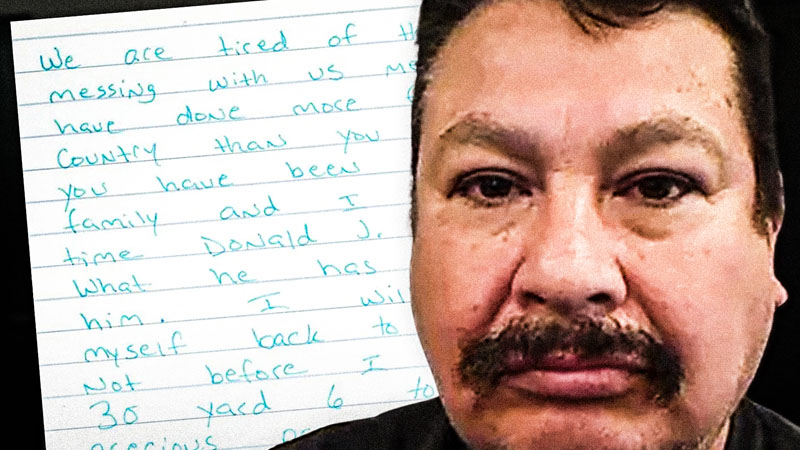 We are tired of
messing with us
have done more
Country than you
you have been
family and I
time Donald J.
What he has
him. I
myself back to
Not before I
30 yard 6 to
precious